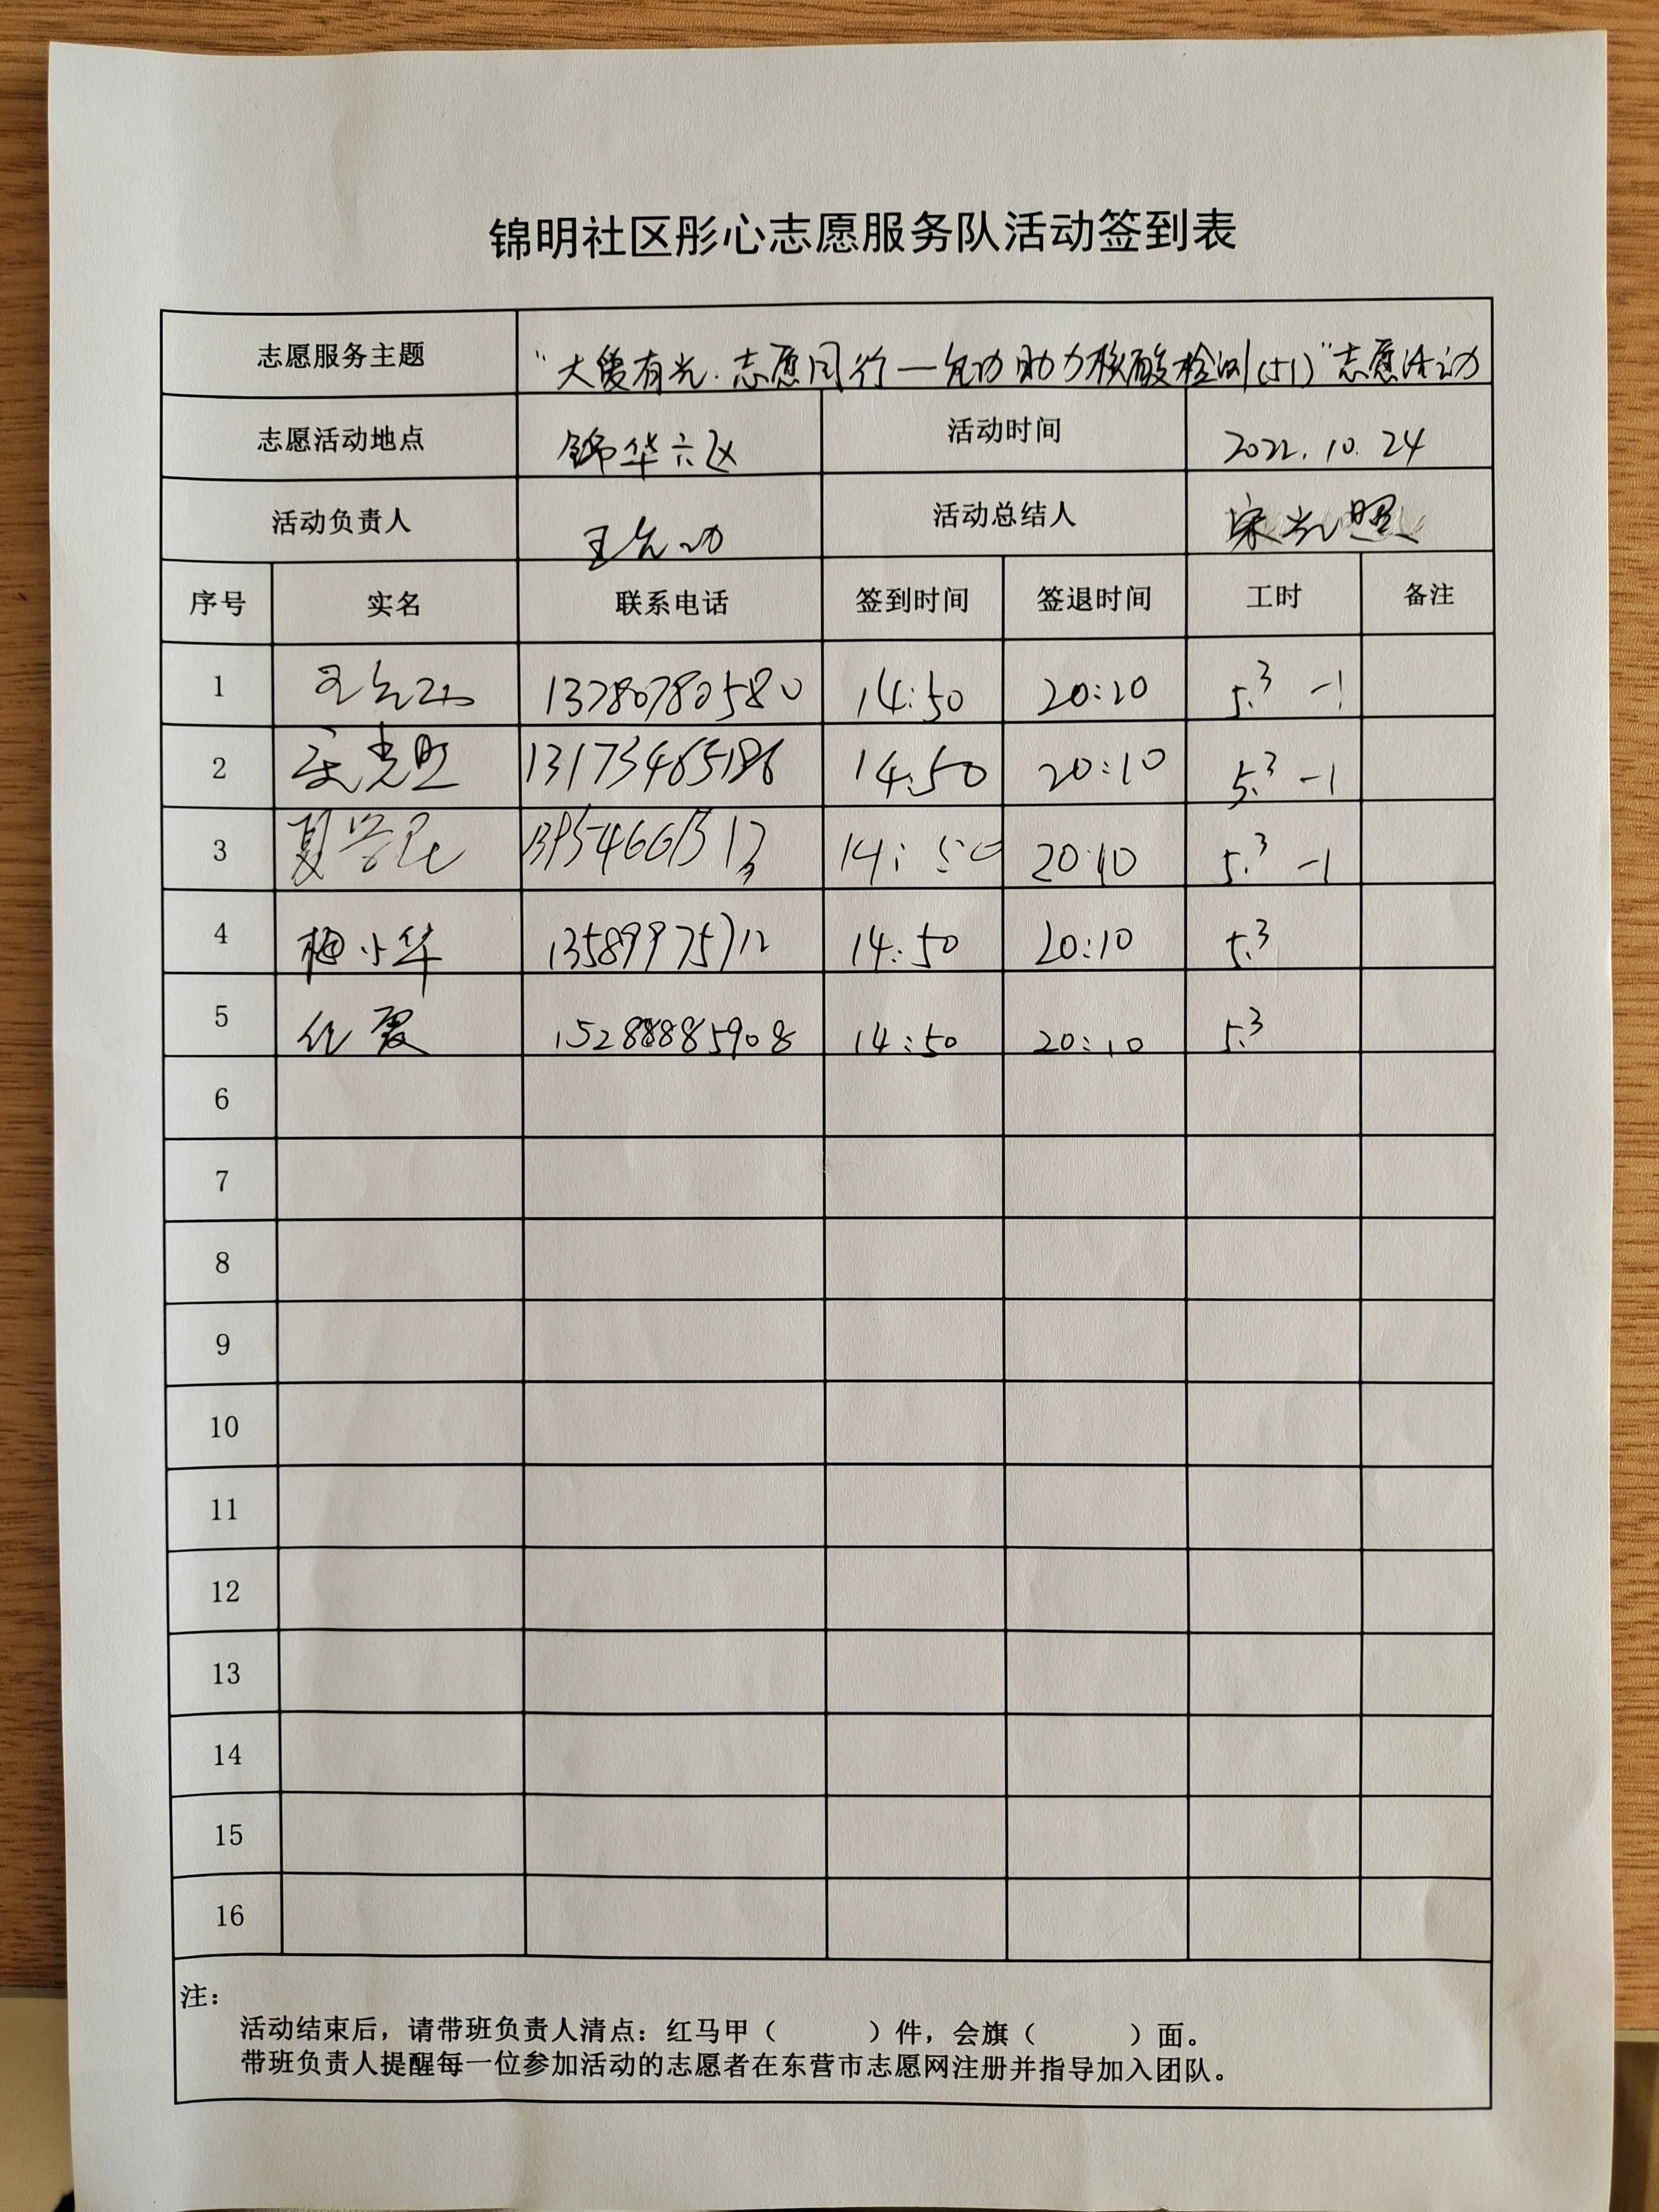 锦明社区彤心志愿服务队活动签到表
志愿服务主题 “大爱有光·志愿同行— 助力核酸检测(51)”志愿活动
志愿活动地点 锦华六区 活动时间 2022.10.24
活动负责人 活动总结人 宋光照
序号 实名 联系电话 签到时间 签退时间 工时 备注
1 13780780580 14:50 20:10 5.3 -1
2 宋光照 14:50 20:10 5.3 -1
3 14:50 20:10 5.3 -1
4 梅小华 13589975712 14:50 20:10 5.3
5 任霞 15288885908 14:50 20:10 5.3
6
7
8
9
10
11
12
13
14
15
16
注：
活动结束后，请带班负责人清点：红马甲（ ）件，会旗（ ）面。
带班负责人提醒每一位参加活动的志愿者在东营市志愿网注册并指导加入团队。